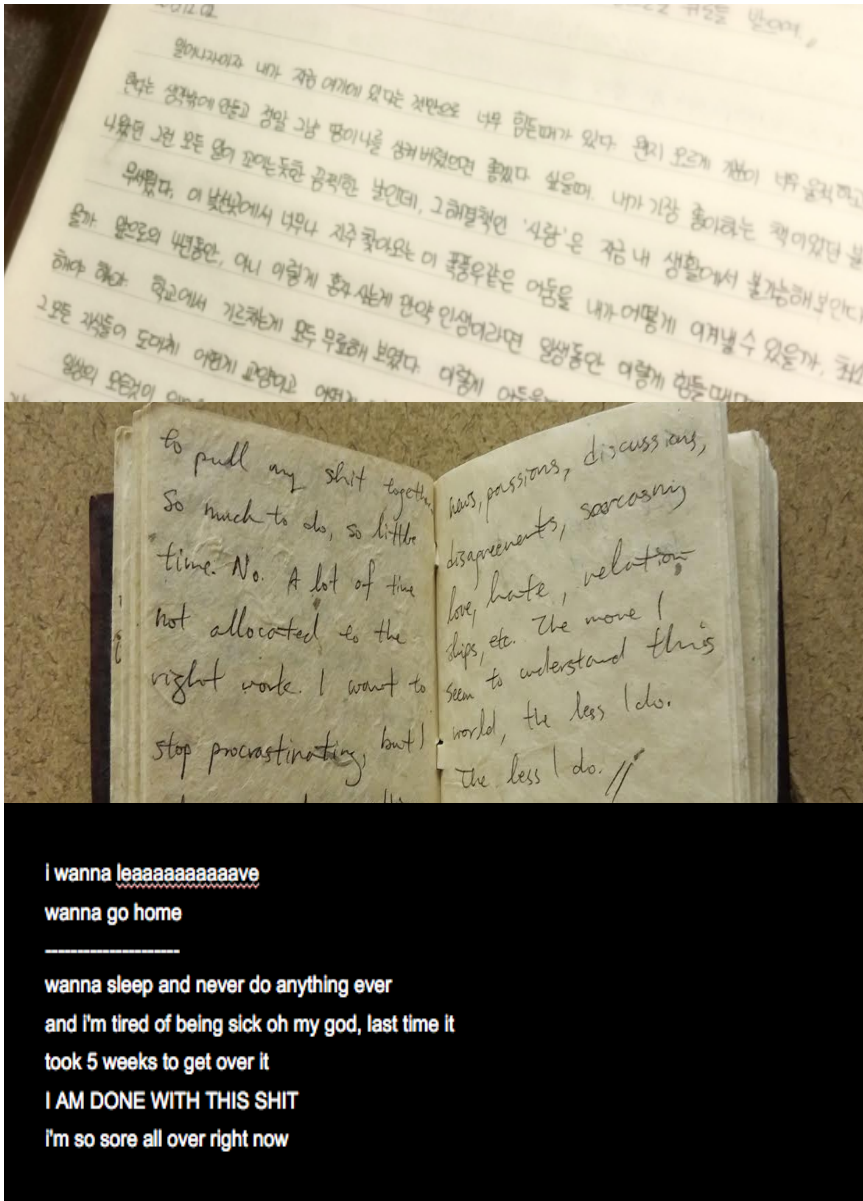 일어나자마자 내가 지금 여기에 있다는 것만으로 너무 힘든때가 있다. 왠지 모르게 기분이 너무 울적하고
생각밖에 안들고 정말 그냥 땅이 나를 삼켜 버렸으면 좋겠다 싶을때. 내가 가장 좋아하는 책이었던
나왔던 그런 모든 일이 꼬이는듯한 끔찍한 날인데, 그 해결책인 '사람'은 지금 내 생활에서 불가능해 보인다
무서웠다. 이 낯선곳에서 너무나 자주 찾아오는 이 폭풍우같은 어둠을 내가 어떻게 이겨낼 수 있을까,
앞으로의 4년동안, 아니 이렇게 혼자 사는게 만약 인생이라면 일생동안 이렇게 힘들때마다
해야 학교에서 가르쳐는게 모두 무료해 보였다. 이렇게
그 모든 지식들이 도대체 어떻게
일상의 모든것이
to pull my shit together
So much to do, so little
time. No. A lot of time
not allocated to the
right work. I want to
stop procrastinating, but I
news, passions, discussions,
disagreements, sarcasm,
love, hate, relation-
ships, etc. The more I
seem to understand this
world, the less I do.
The less I do. //
i wanna leaaaaaaaaaaave
wanna go home
---------------------
wanna sleep and never do anything ever
and i'm tired of being sick oh my god, last time it
took 5 weeks to get over it
I AM DONE WITH THIS SHIT
i'm so sore all over right now